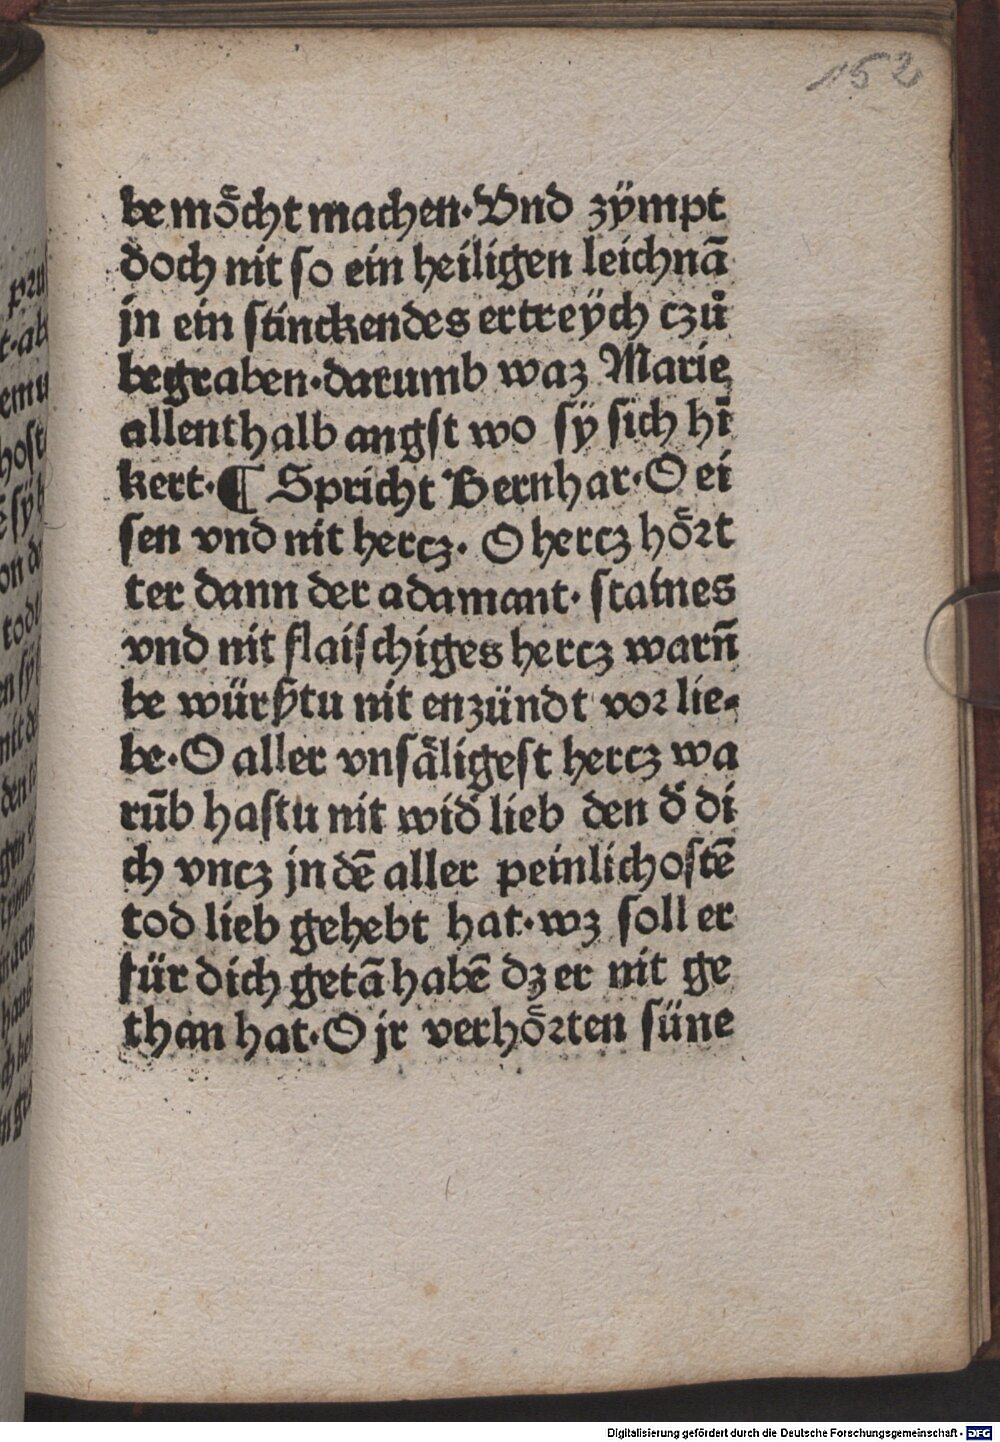 152
be möcht machen·Vnd zÿmpt
doch nit so ein heiligen leichnā
jn ein stinckendes ertreÿch czů
begraben·darumb waz Marie
allenthalb angst wo sÿ sich hī
kert·¶ Spricht Bernhar·O ei
sen vnd nit hercz· O hercz hört
ter dann der adamant· staines
vnd nit flaischiges hercz warn̄
be würstu nit enzündt vor lie-
be·O aller vnsäligest hercz wa
rūb hastu nit wid̓ lieb den d̓ di
ch vncz jn dē aller peinlichostē
tod lieb gehebt hat·wz soll er
für dich getā habē dz er nit ge
than hat·O jr verhörten süne
Digitalisierung gefördert durch die Deutsche Forschungsgemeinschaft - DFG